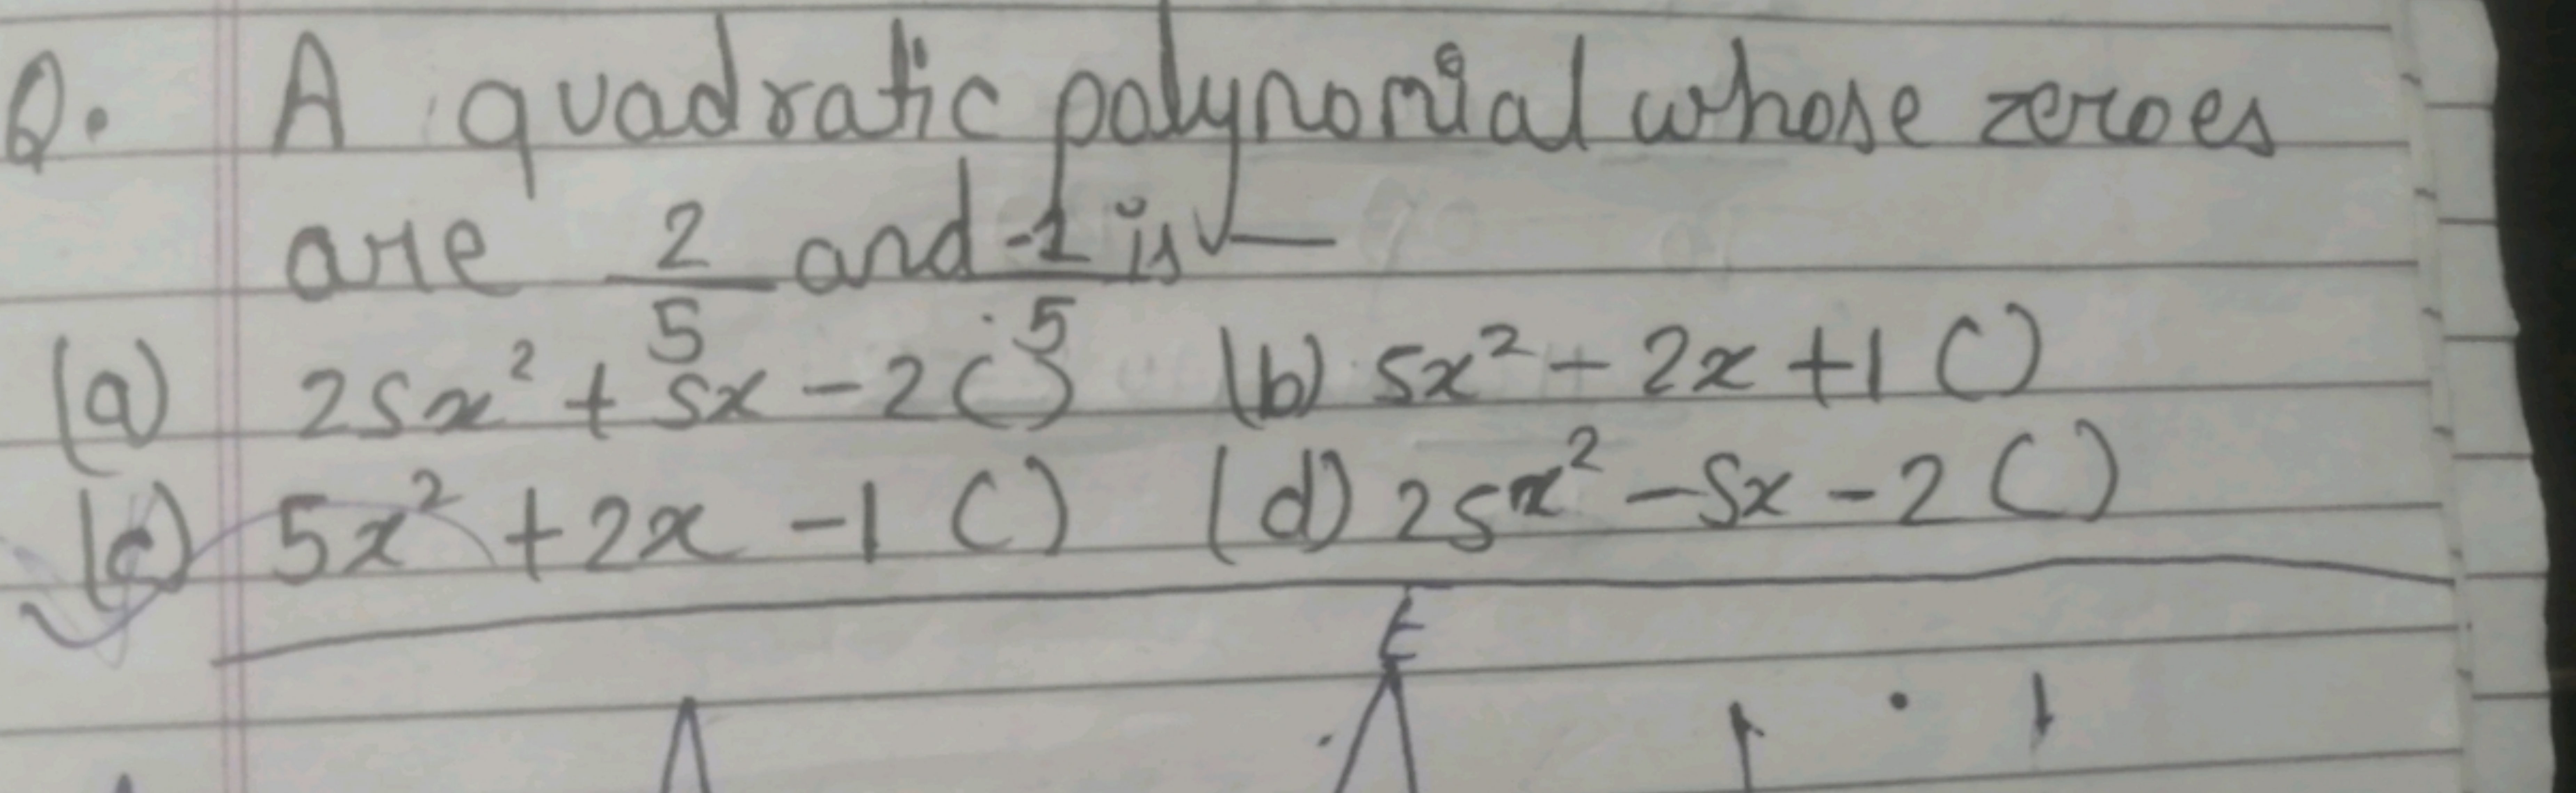 Q. A quadratic polynomial whose zeroes
are 2/5 and -1/5 is —
(a) 25x² + 5x - 2 ( ) (b) 5x² - 2x + 1 ( )
(c) 5x² + 2x - 1 ( ) (d) 25x² - 5x - 2 ( )
E